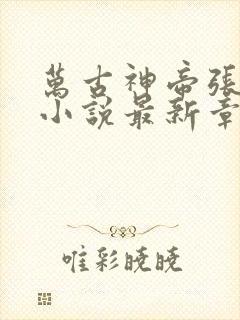 萬古神帝張
小說最新章
唯彩曉曉